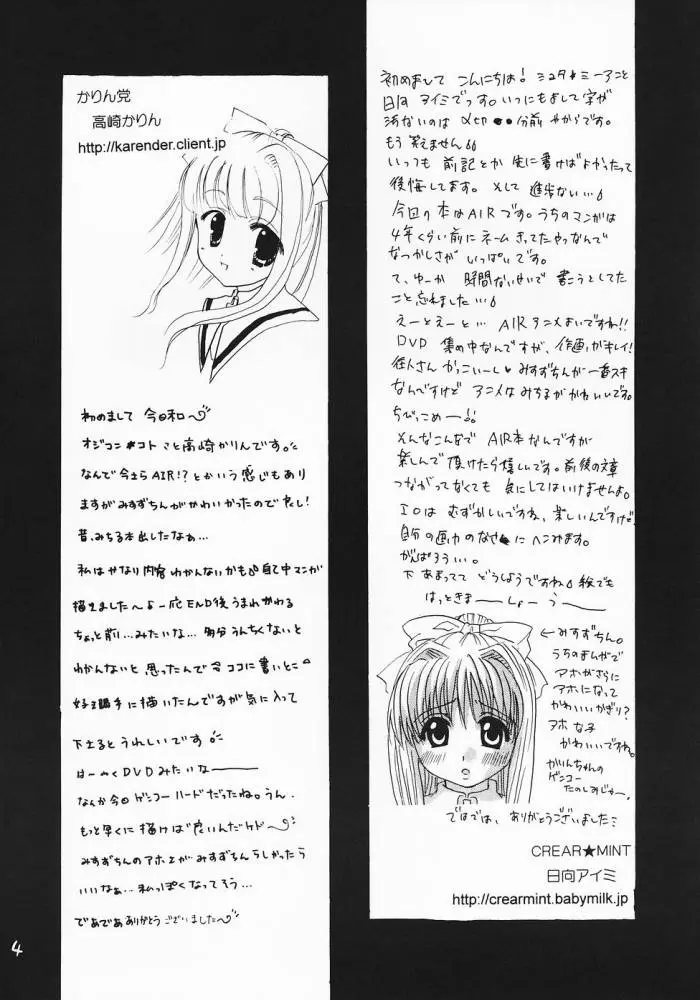 初めまして こんにちは! ミユタ★ミーアこと
日向 アイミでっす。いつにもまして字が
汚ないのは 〆切 ●●分前 やからです。
もう 笑えません
いっつも 前記とか 先に書けばよかったって
後悔してます。そして 進歩ない…
今回の本はAIRです。うちのマンガは
4年くらい前に ネーム きってたやつなんで
なつかしさが いっぱいです。
て、ゆーか 時間ないせいで 書こうとしてた
こと忘れました…
えーとえーと… AIRアニメよいですね!!
DVD 集め中なんですが、作画がキレイ!
往人さん かっこいーし♥ みすずちんが一番スキ
なんですけど アニメは みちるが かわいいです。
ちびっこめーー!!
そんなこんなで AIR本なんですが
楽しんで 頂けたら嬉しいです。前後の文章
つながってなくても 気にしてはいけませんよ。
はむずかしいですね、楽しいんですけど
自分の画力のなさにへこみます。
がんばろうい。
下 あまってて どうしようですね 絵でも
はっときまーーしょーうーー
←みすずちん。
うちのまんがで
アホがさらに
アホになって
かわいいかぎり?
アホな子
かわいいですね。
かりんちゃんの
ゲンコー
たのしみじゃー。
ではでは、ありがとうございました
CREAR★MINT
日向アイミ
http://crearmint.babymilk.jp
かりん党
高崎かりん
http://karender.client.jp
初めまして 今日和
オジコン★コト さと高崎かりんです。
なんで今さらAIR!?とかいう感じもあり
ますがみすずちんがかわいかったので良し!
昔、みちる本出したなぁ…
私はせなり内容わかんないかも 自己中マンガ
描きました〜 よ 一応END後うまれかわる
ちょっと前…みたいな… 多分うんちくないと
わかんないと 思ったんで今ココに書いとこ
好き勝手に描いたんですが気に入って
下さるとうれしいです。
はーやくDVDみたいなーーー
なんか今回 ゲンコーハードだったね。うん。
もっと早くに描けば良いんだケド
みすずちんのアホ上がみすずちんらしかったら
いいなぁ… 私っぽくなってそう…
であであ ありがとうございました〜
4